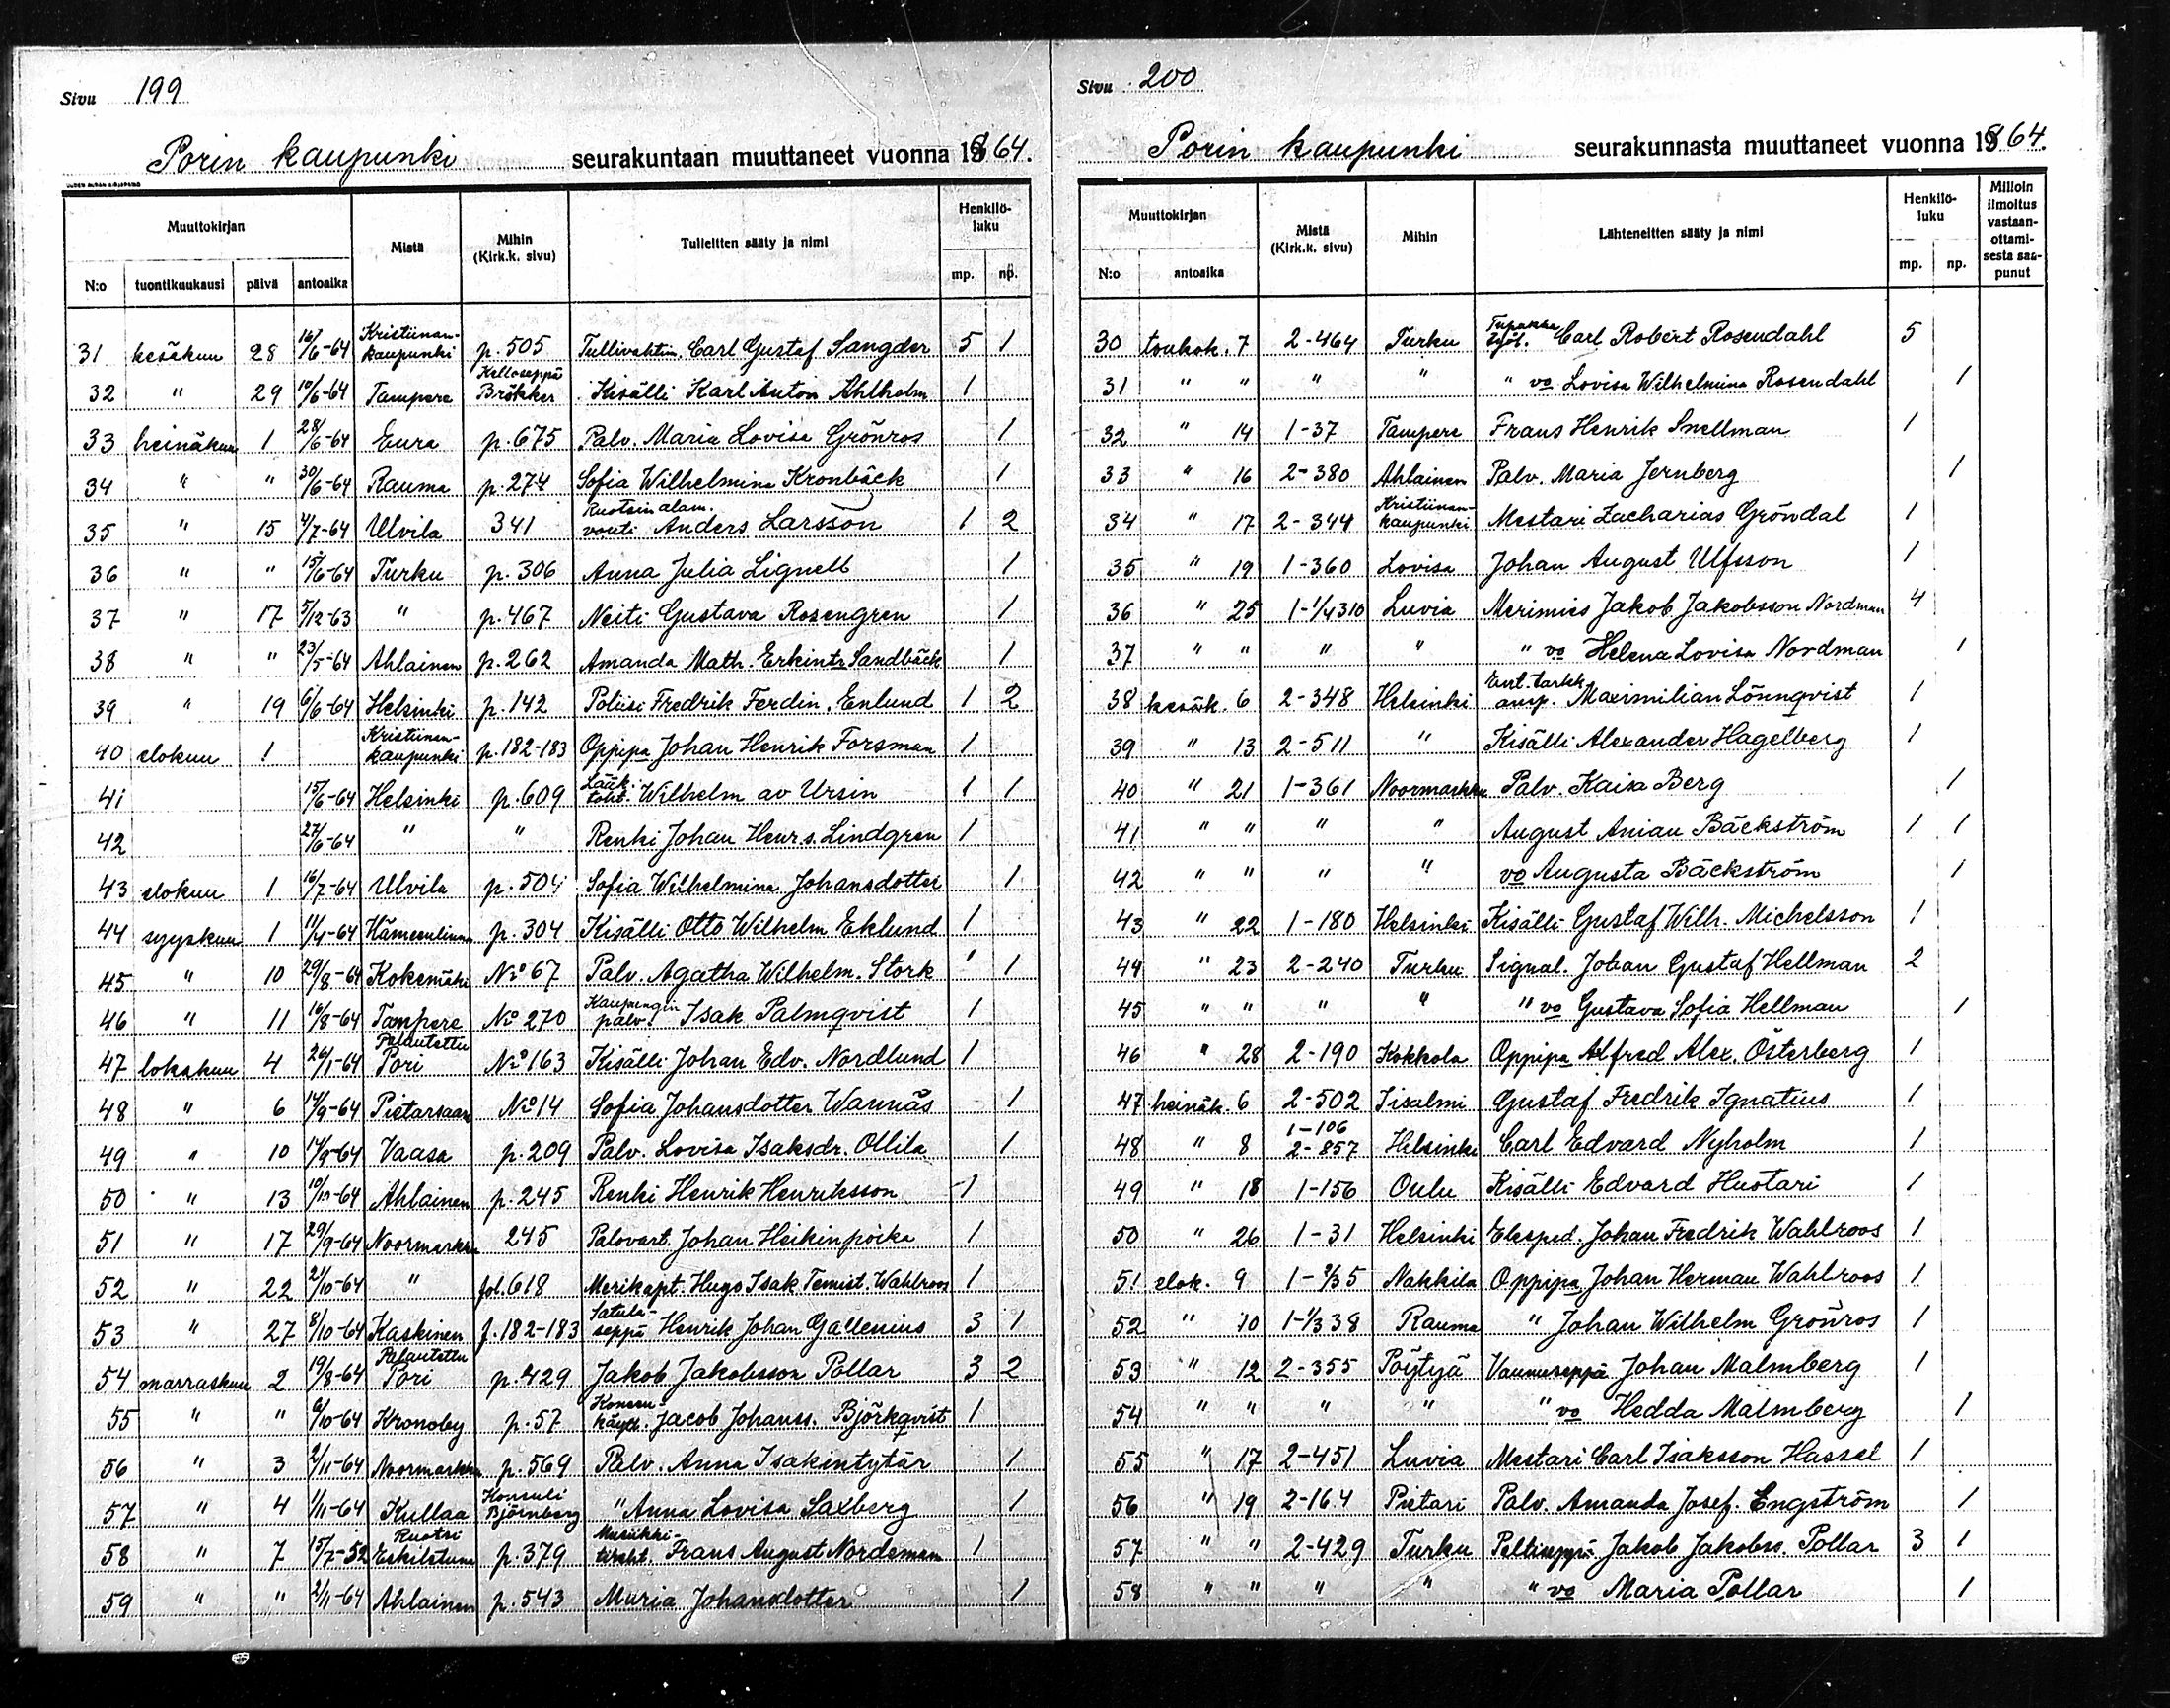 Sivu 199
Porin kaupunki seurakuntaan muuttaneet vuonna 1864.
Muuttokirjan
Mistä
Mihin (Kirk.k. sivu)
Tulleitten sääty ja nimi
Henkilö-luku
N:o tuontikuukausi päivä antoaika mp. np.
31 kesäkuu 28 16/6-64 Kristiinan-kaupunki p.505 Tullivahtim. Carl Gustaf Sangder 5 1
32 " 29 10/6-64 Tampere Kelloseppä Bröcker Kisälli Karl Anton Ahlholm 1
33 heinäkuu 1 28/6-64 Eura p.675 Palv. Maria Lovisa Grönros 1
34 " " 30/6-64 Rauma p.274 Sofia Wilhelmina Kronbäck 1
35 " 15 4/7-64 Ulvila 341 Ruotsin alam. vouti Anders Larsson 1 2
36 " " 15/6-64 Turku p.306 Anna Julia Lignell 1
37 " 17 5/12-63 " p.467 Neiti Gustava Rosengren 1
38 " " 23/5-64 Ahlainen p.262 Amanda Math. Erkintr Sandbäck 1
39 " 19 6/6-64 Helsinki p.142 Poliisi Fredrik Ferdin. Enlund 1 2
40 elokuu 1 Kristiinan-kaupunki p.182-183 Oppipa Johan Henrik Forsman 1
41 15/6-64 Helsinki p.609 Lääk. toht. Wilhelm av Ursin 1 1
42 27/6-64 " " Renki Johan Henr.s. Lindgren 1
43 elokuu 1 16/7-64 Ulvila p.504 Sofia Wilhelmina Johansdotter 1
44 syyskuu 1 11/4-64 Hämeenlinna p.304 Kisälli Otto Wilhelm Eklund 1
45 " 10 29/8-64 Kokemäki No 67 Palv. Agatha Wilhelm. Stork 1
46 " 11 16/8-64 Tampere No 270 Kaupungin palv. Isak Palmqvist 1
47 lokakuu 4 26/1-64 Palautettu Pori No 163 Kisälli Johan Edv. Nordlund 1
48 " 6 14/9-64 Pietarsaari No 14 Sofia Johansdotter Wannäs 1
49 " 10 14/9-64 Vaasa p.209 Palv. Lovisa Isaksdr. Ollila 1
50 " 13 10/10-64 Ahlainen p.245 Renki Henrik Henriksson 1
51 " 17 29/9-64 Noormarkku 245 Palovart. Johan Heikinpoika 1
52 " 22 21/10-64 " fol.618 Merikapt. Hugo Isak Temist. Wahlroos 1
53 " 27 8/10-64 Kaskinen f.182-183 Satula-seppä Henrik Johan Gallenius 3 1
54 marraskuu 2 19/8-64 Palautettu Pori p.429 Jakob Jakobsson Pollar 3 2
55 " " 6/10-64 Kronoby p.57 Jacob Johanss. Björkqvist 1
56 " 3 2/11-64 Noormarkku p.569 Palv. Anna Isakintytär 1
57 " 4 1/11-64 Kullaa Konsuli Björnberg " Anna Lovisa Saxberg 1
58 " 7 15/7-52 Ruotsi Eskilstuna p.379 Musiikki-tireht. Frans August Nordeman 1
59 " " 2/11-64 Ahlainen p.543 Maria Johansdotter 1
Sivu 200
Porin kaupunki seurakunnasta muuttaneet vuonna 1864.
Muuttokirjan
Mistä (Kirk.k. sivu)
Mihin
Lähteneitten sääty ja nimi
Henkilö-luku
Milloin ilmoitus vastaan-ottami-sesta saa-punut
N:o antoaika mp. np.
30 toukok. 7 2-464 Turku Tupakka työl. Carl Robert Rosendahl 5
31 " " " " " vo Lovisa Wilhelmina Rosendahl 1
32 " 14 1-37 Tampere Frans Henrik Snellman 1
33 " 16 2-380 Ahlainen Palv. Maria Jernberg 1
34 " 17 2-344 Kristiinan-kaupunki Mestari Zacharias Gröndal 1
35 " 19 1-360 Lovisa Johan August Ulfsson 1
36 " 25 1-1/4310 Luvia Merimies Jakob Jakobsson Nordman 4
37 " " " " " vo Helena Lovisa Nordman 1
38 kesäk. 6 2-348 Helsinki Ent. tarkk. amp. Maximilian Lönnqvist 1
39 " 13 2-511 " Kisälli Alexander Hagelberg 1
40 " 21 1-361 Noormarkku Palv. Kaisa Berg 1
41 " " " " August Anian Bäckström 1 1
42 " " " " vo Augusta Bäckström 1
43 " 22 1-180 Helsinki Kisälli Gustaf Wilh. Michelsson 1
44 " 23 2-240 Turku Signal. Johan Gustaf Hellman 2
45 " " " " " vo Gustava Sofia Hellman 1
46 " 28 2-190 Kokkola Oppipa Alfred Alex. Österberg 1
47 heinäk. 6 2-502 Iisalmi Gustaf Fredrik Ignatius 1
48 " 8 1-106 2-857 Helsinki Carl Edvard Nyholm 1
49 " 18 1-156 Oulu Kisälli Edvard Huotari 1
50 " 26 1-31 Helsinki Eksped. Johan Fredrik Wahlroos 1
51 elok. 9 1-2/35 Nakkila Oppipa Johan Herman Wahlroos 1
52 " 10 1-1/338 Rauma " Johan Wilhelm Grönros 1
53 " 12 2-355 Pöytyä Vaunuseppä Johan Malmberg 1
54 " " " " " vo Hedda Malmberg 1
55 " 17 2-451 Luvia Mestari Carl Isaksson Hassel 1
56 " 19 2-164 Pietari Palv. Amanda Josef. Engström 1
57 " " 2-429 Turku Peltiseppä Jakob Jakobss. Pollar 3 1
58 " " " " " vo Maria Pollar 1